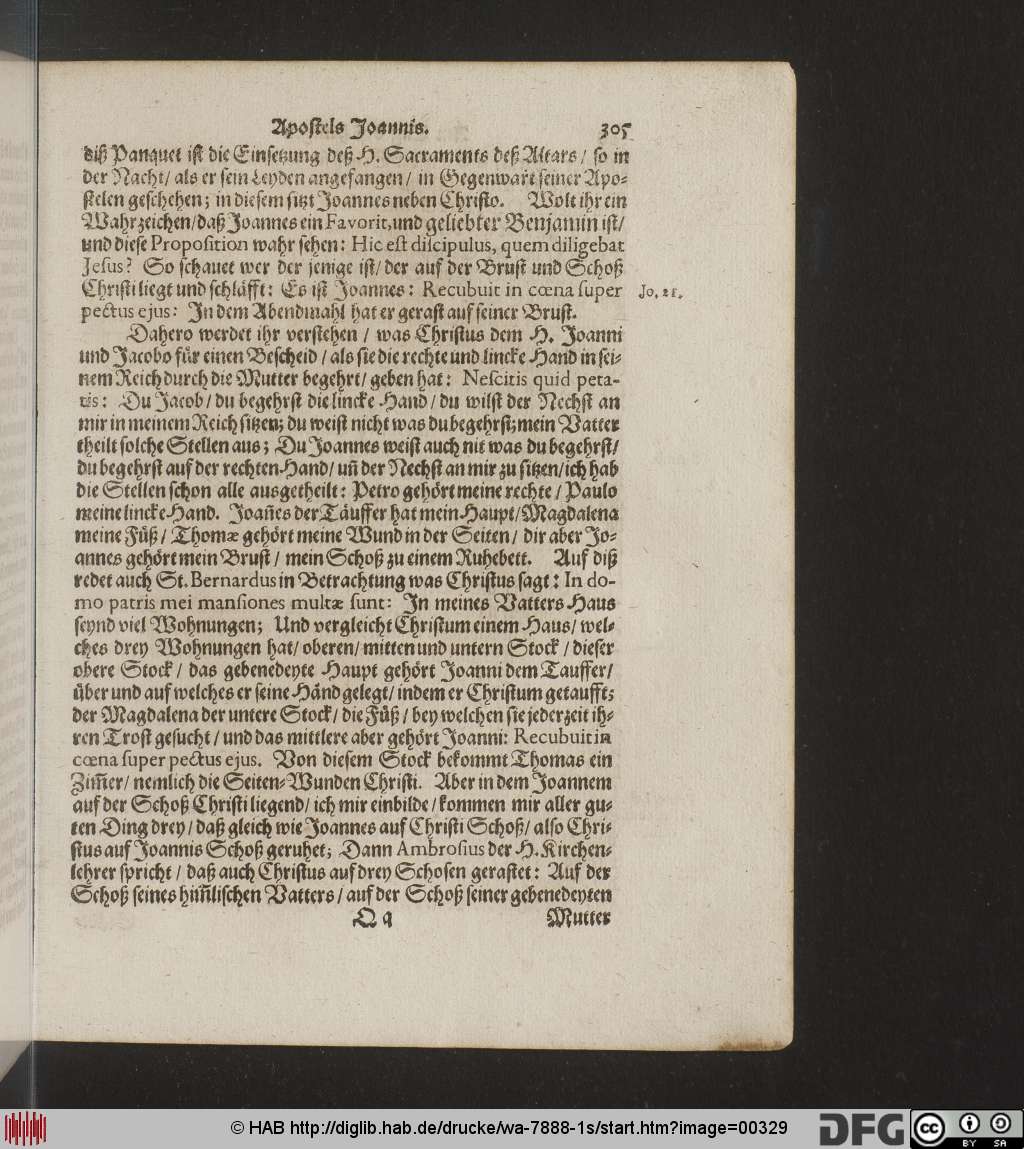 Apostels Joannis. 305
diß Panquet ist die Einsetzung deß H. Sacraments deß Altars / so in
der Nacht / als er sein Leyden angefangen / in Gegenwart seiner Apo-
stelen geschehen; in diesem sitzt Joannes neben Christo. Wolt ihr ein
Wahrzeichen / daß Joannes ein Favorit, und geliebter Benjamin ist /
und diese Proposition wahr sehen: Hic est discipulus, quem diligebat
Jesus? So schauet wer der jenige ist / der auf der Brust und Schoß
Christi liegt und schläfft: Es ist Joannes: Recubuit in cœna super Jo. 21.
pectus ejus: In dem Abendmahl hat er gerast auf seiner Brust.
Dahero werdet ihr verstehen / was Christus dem H. Joanni
und Jacobo für einen Bescheid / als sie die rechte und lincke Hand in sei-
nem Reich durch die Mutter begehrt / geben hat: Nescitis quid peta-
tis: Du Jacob / du begehrst die lincke Hand / du wilst der Nechst an
mir in meinem Reich sitzen; du weist nicht was du begehrst; mein Vatter
theilt solche Stellen aus; Du Joannes weist auch nit was du begehrst /
du begehrst auf der rechten Hand / uñ der Nechst an mir zu sitzen / ich hab
die Stellen schon alle ausgetheilt: Petro gehört meine rechte / Paulo
meine lincke Hand. Joañes der Täuffer hat mein Haupt / Magdalena
meine Füß / Thomæ gehört meine Wund in der Seiten / dir aber Jo-
annes gehört mein Brust / mein Schoß zu einem Ruhebett. Auf diß
redet auch St. Bernardus in Betrachtung was Christus sagt: In do-
mo patris mei mansiones multæ sunt: In meines Vatters Haus
seynd viel Wohnungen; Und vergleicht Christum einem Haus / wel-
ches drey Wohnungen hat / oberen / mitten und untern Stock / dieser
obere Stock / das gebenedeyte Haupt gehört Joanni dem Tauffer /
über und auf welches er seine Händ gelegt / indem er Christum getaufft;
der Magdalena der untere Stock / die Füß / bey welchen sie jederzeit ih-
ren Trost gesucht / und das mittlere aber gehört Joanni: Recubuit in
cœna super pectus ejus. Von diesem Stock bekommt Thomas ein
Zim̃er / nemlich die Seiten-Wunden Christi. Aber in dem Joannem
auf der Schoß Christi liegend / ich mir einbilde / kommen mir aller gu-
ten Ding drey / daß gleich wie Joannes auf Christi Schoß / also Chri-
stus auf Joannis Schoß geruhet; Dann Ambrosius der H. Kirchen-
lehrer spricht / daß auch Christus auf drey Schosen gerastet: Auf der
Schoß seines him̃lischen Vatters / auf der Schoß seiner gebenedeyten
Q q Mutter
© HAB http://diglib.hab.de/drucke/wa-7888-1s/start.htm?image=00329
DFG cc BY SA